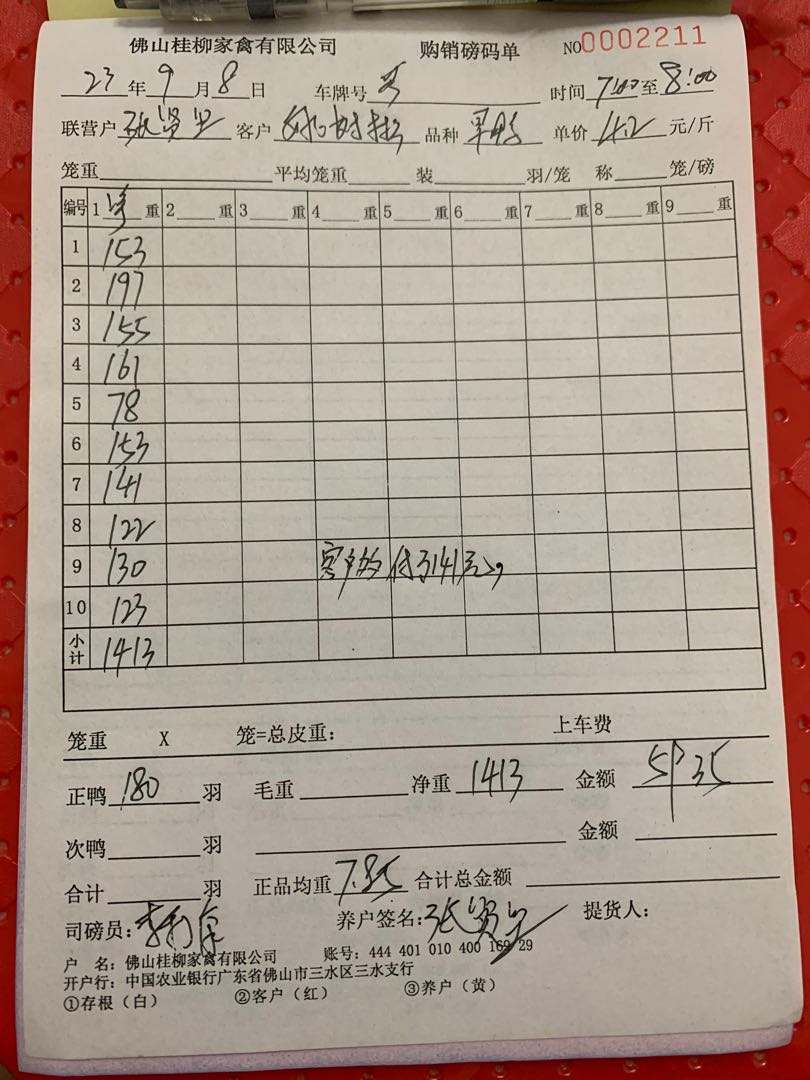 佛山桂柳家禽有限公司 购销磅码单 NO0002211
23年9月8日 车牌号 时间7:00至8:00
联营户 张贤 客户 品种 单价4.2元/斤
笼重 平均笼重 装 羽/笼 称 笼/磅
编号 1 重 2 重 3 重 4 重 5 重 6 重 7 重 8 重 9 重
1 153
2 197
3 155
4 161
5 78
6 153
7 141
8 122
9 130 客户 付了141元
10 123
小计 1413
笼重 X 笼=总皮重: 上车费
正鸭180羽 毛重 净重1413 金额5935
次鸭 羽 金额
合计 羽 正品均重7.85 合计总金额
司磅员: 李 养户签名: 张贤 提货人:
户 名: 佛山桂柳家禽有限公司 账号: 444 401 010 400 169 29
开户行: 中国农业银行广东省佛山市三水区三水支行
①存根(白) ②客户(红) ③养户(黄)